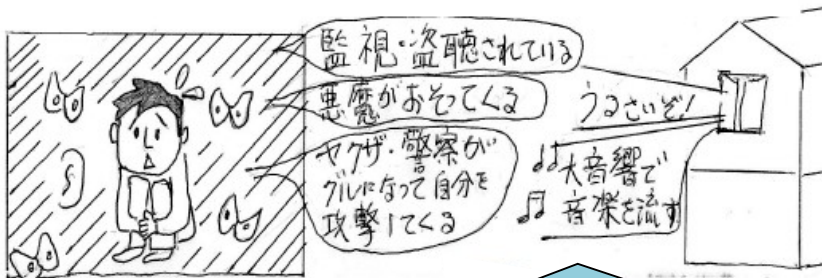 監視・盗聴されている
悪魔がおそってくる
ヤクザ・警察が
グルになって自分を
攻撃してくる
うるさいぞ!
大音響で
音楽を流す